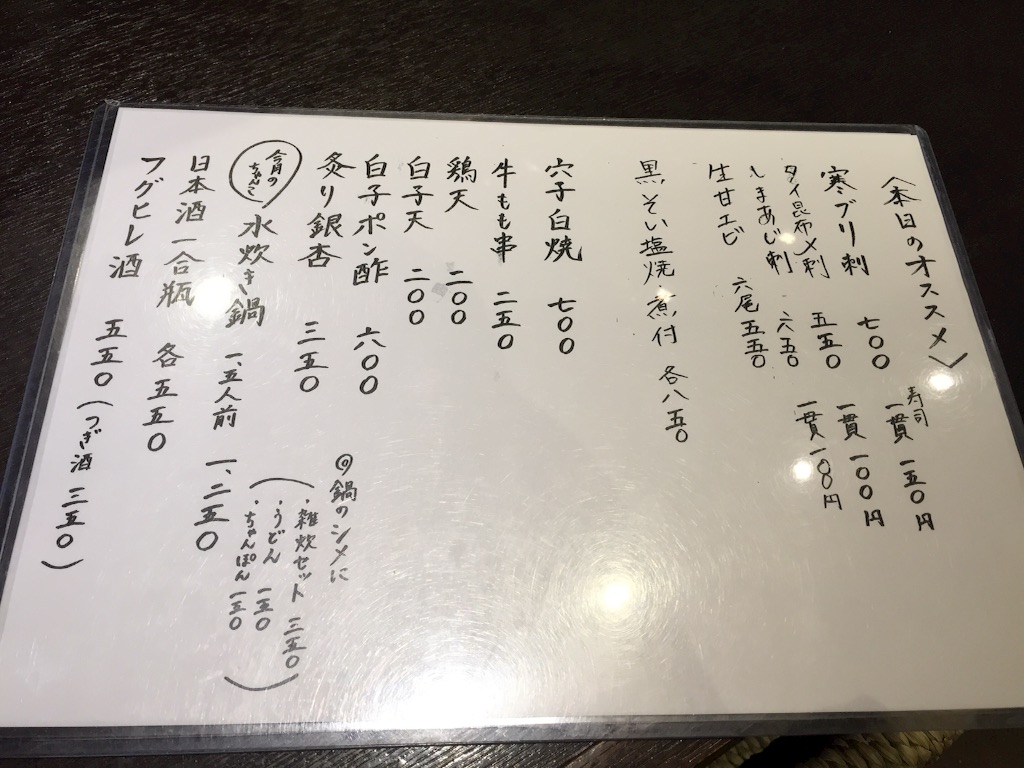 〈本日のオススメ〉
寒ブリ刺 七〇〇 寿司 一貫 一五〇円
タイ昆布〆刺 五五〇 一貫 一〇〇円
しまあじ刺 六五〇 一貫 一〇〇円
生甘エビ 六尾 五五〇
黒そい塩焼 煮付 各八五〇
穴子白焼 七〇〇
牛もも串 二五〇
鶏天 二〇〇
白子天 二〇〇
白子ポン酢 六〇〇
炙り銀杏 三五〇
今月のちゃんこ 水炊き鍋 一、五人前 一、二五〇
◎鍋のシメに
(・雑炊セット 三五〇
・うどん 一五〇
・ちゃんぽん 一五〇)
日本酒一合瓶 各五五〇
フグヒレ酒 五五〇(つぎ酒 三五〇)